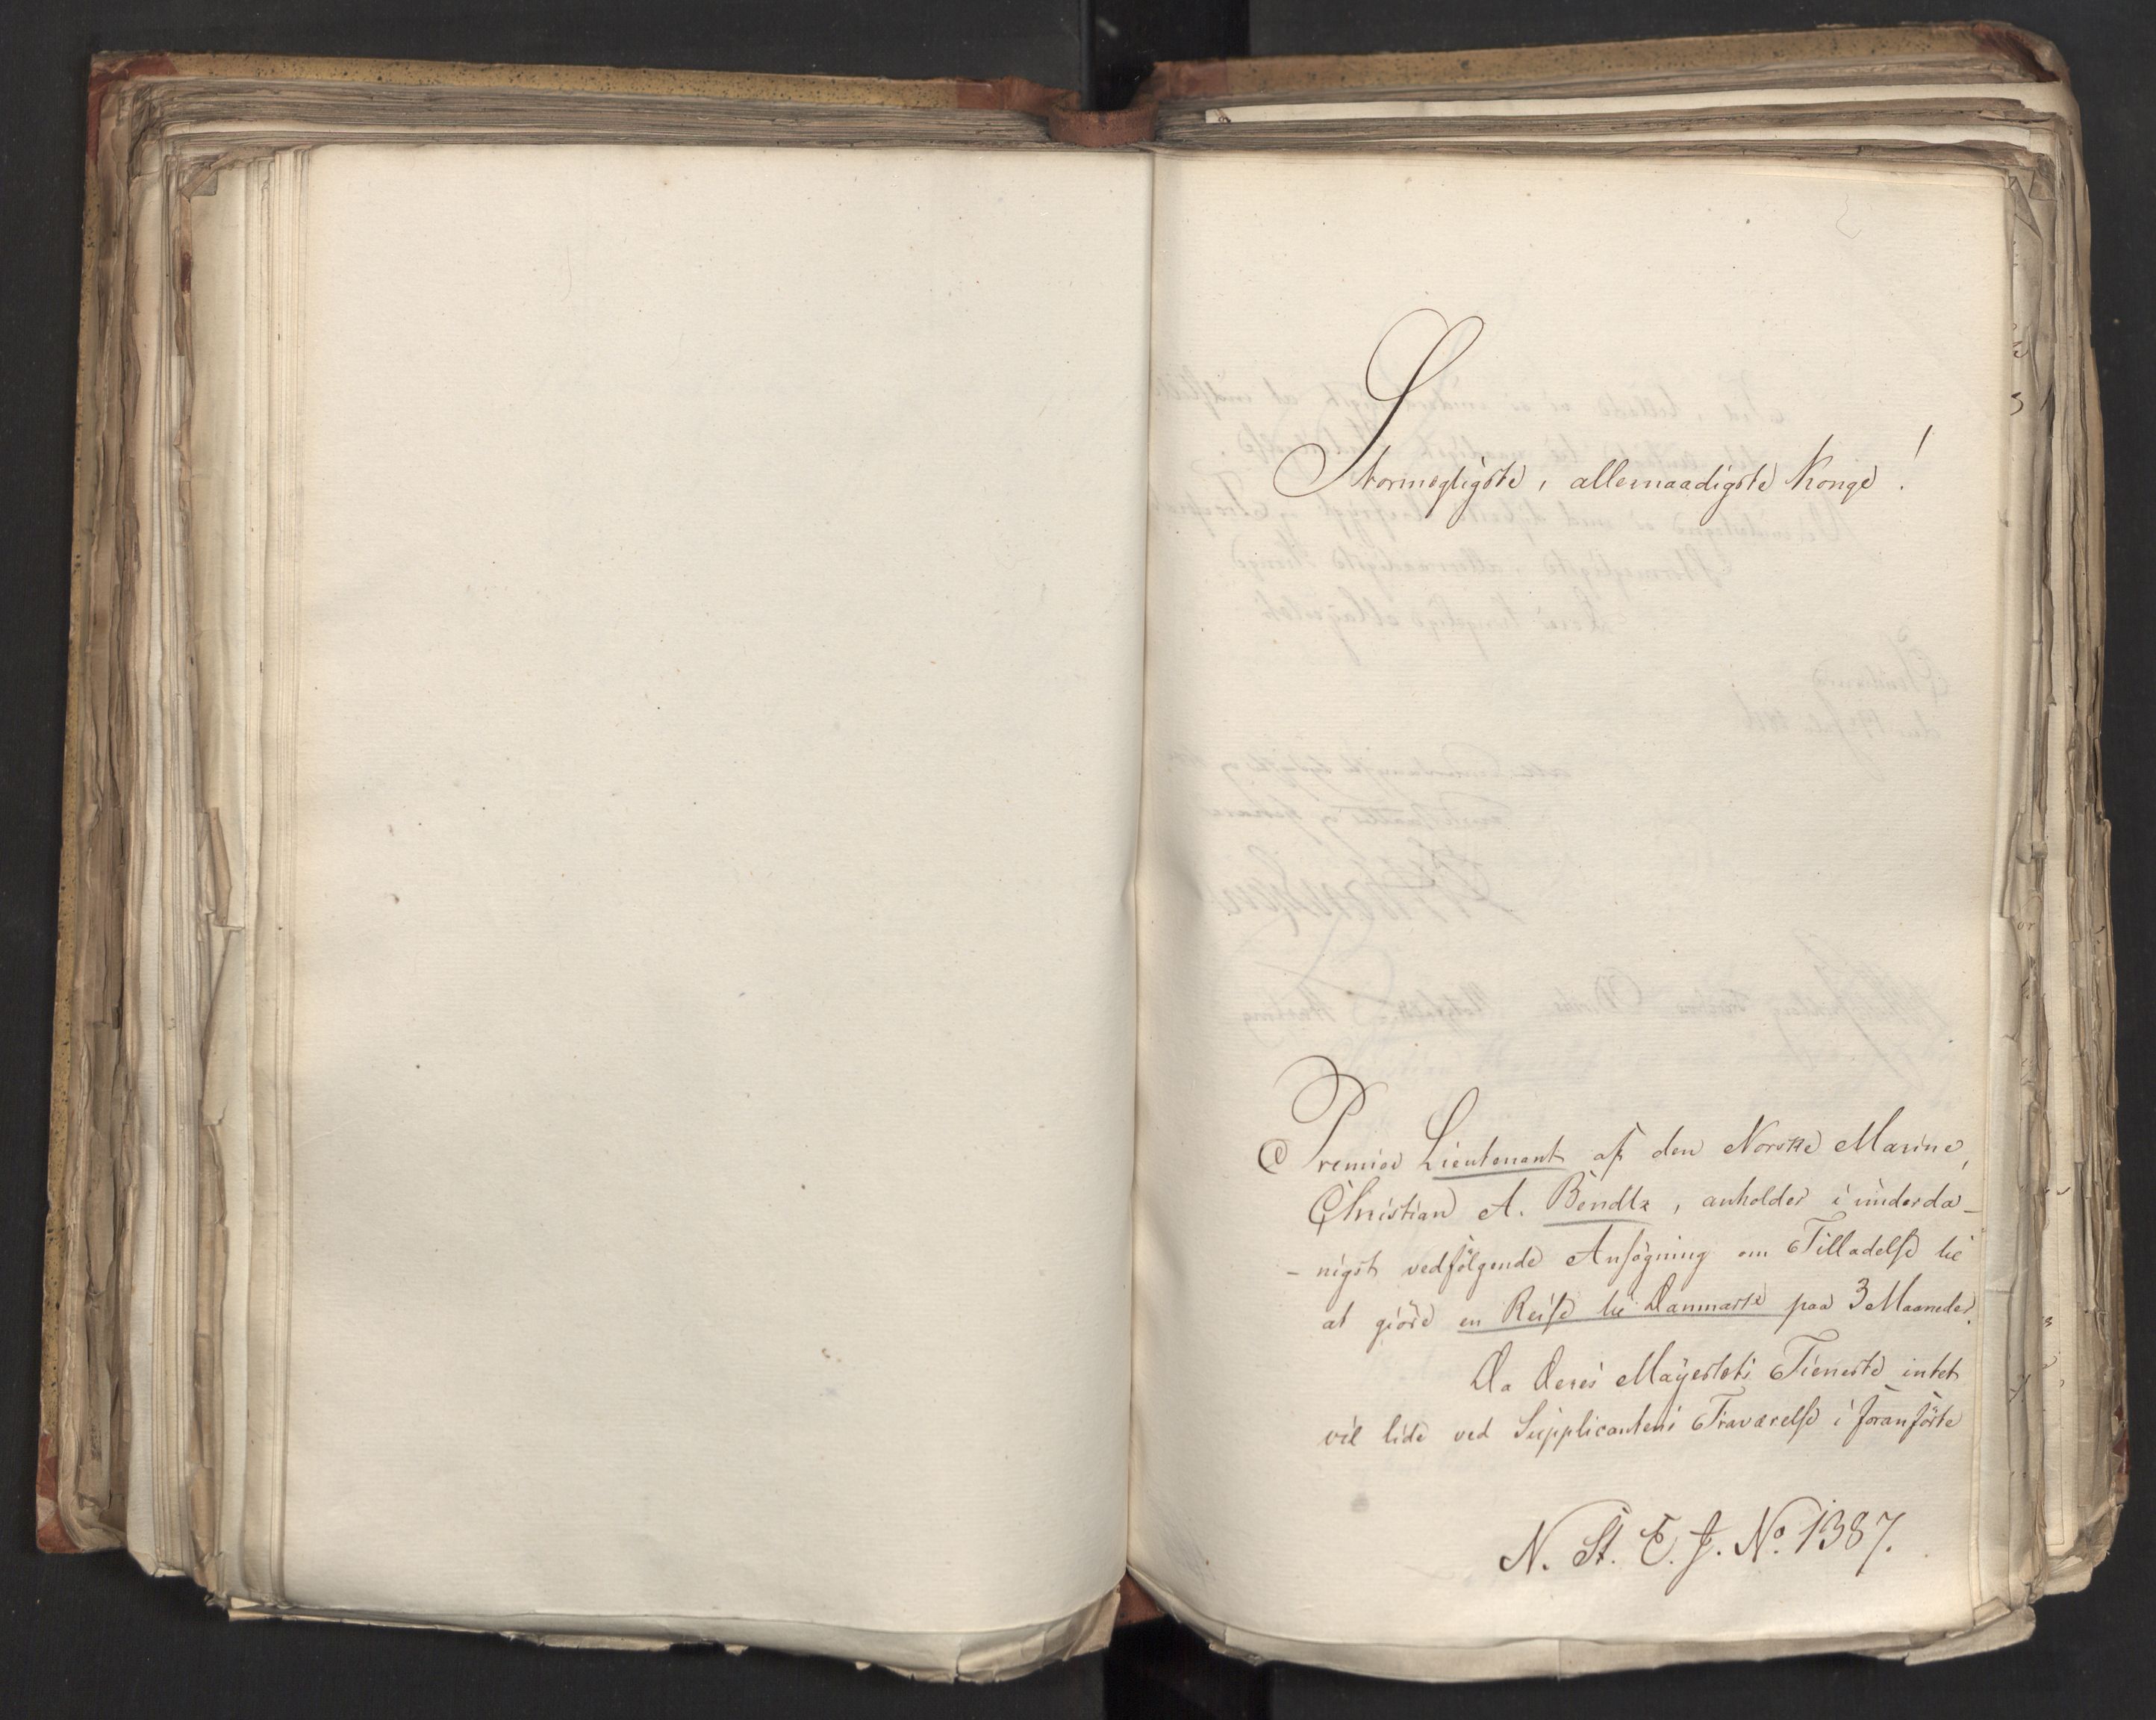 Stormægtigste, allernaadigste Konge!
Premier Lieutenant af den Norske Marine,
Christian A. Bendtz, anholder i underda-
-nigst vedfölgende Ansögning om Tilladelse til
at giöre en Reise til Danmark paa 3 Maaneder.
Da Deres Mayestets Tieneste intet
vil lide ved Supplicantens Fraværelse i foranförte
N. St. E. J. No. 1387.